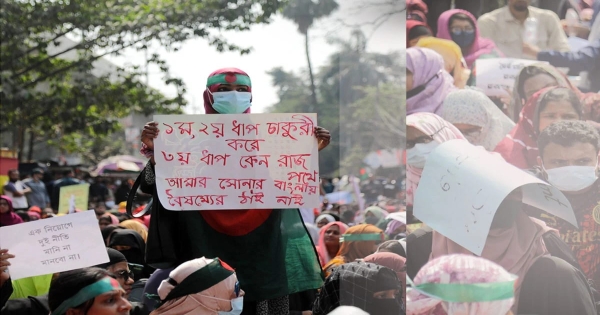 ১ম, ২য় ধাপ চাকুরী
করে
৩য় ধাপ কেন রাজ
পথে
আমার সোনার বাংলায়
বৈষম্যের ঠাঁই নাই
এক নিয়োগে
দুই নীতি
মানি না
মানবো না।